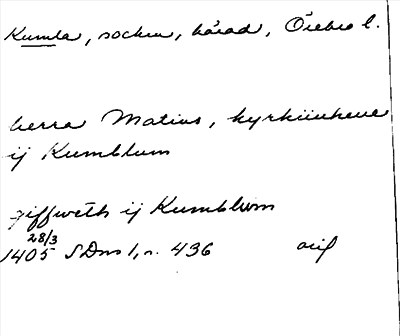 Kumla, socken, härad, Örebro l.
herra Matius, kyrkiuhene
ij Kumblum
giffweth ij Kumblum
28/3
1405 SDns 1, n. 436 orig